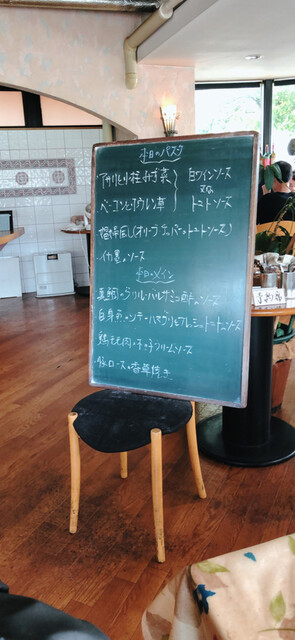 本日のパスタ
アサリと小柱 ねず菜 } 白ワインソース
又は
ベーコンとホウレン草 } トマトソース
娼婦風(オリーブ、ケッパー、トマトソース)
イカ墨のソース
本日のメイン
真鯛のグリル バルサミコ酢のソース
白身魚のソテー ハマグリとフレッシュトマトのソース
鶏もも肉のきの子クリームソース
豚ロースの香草焼き